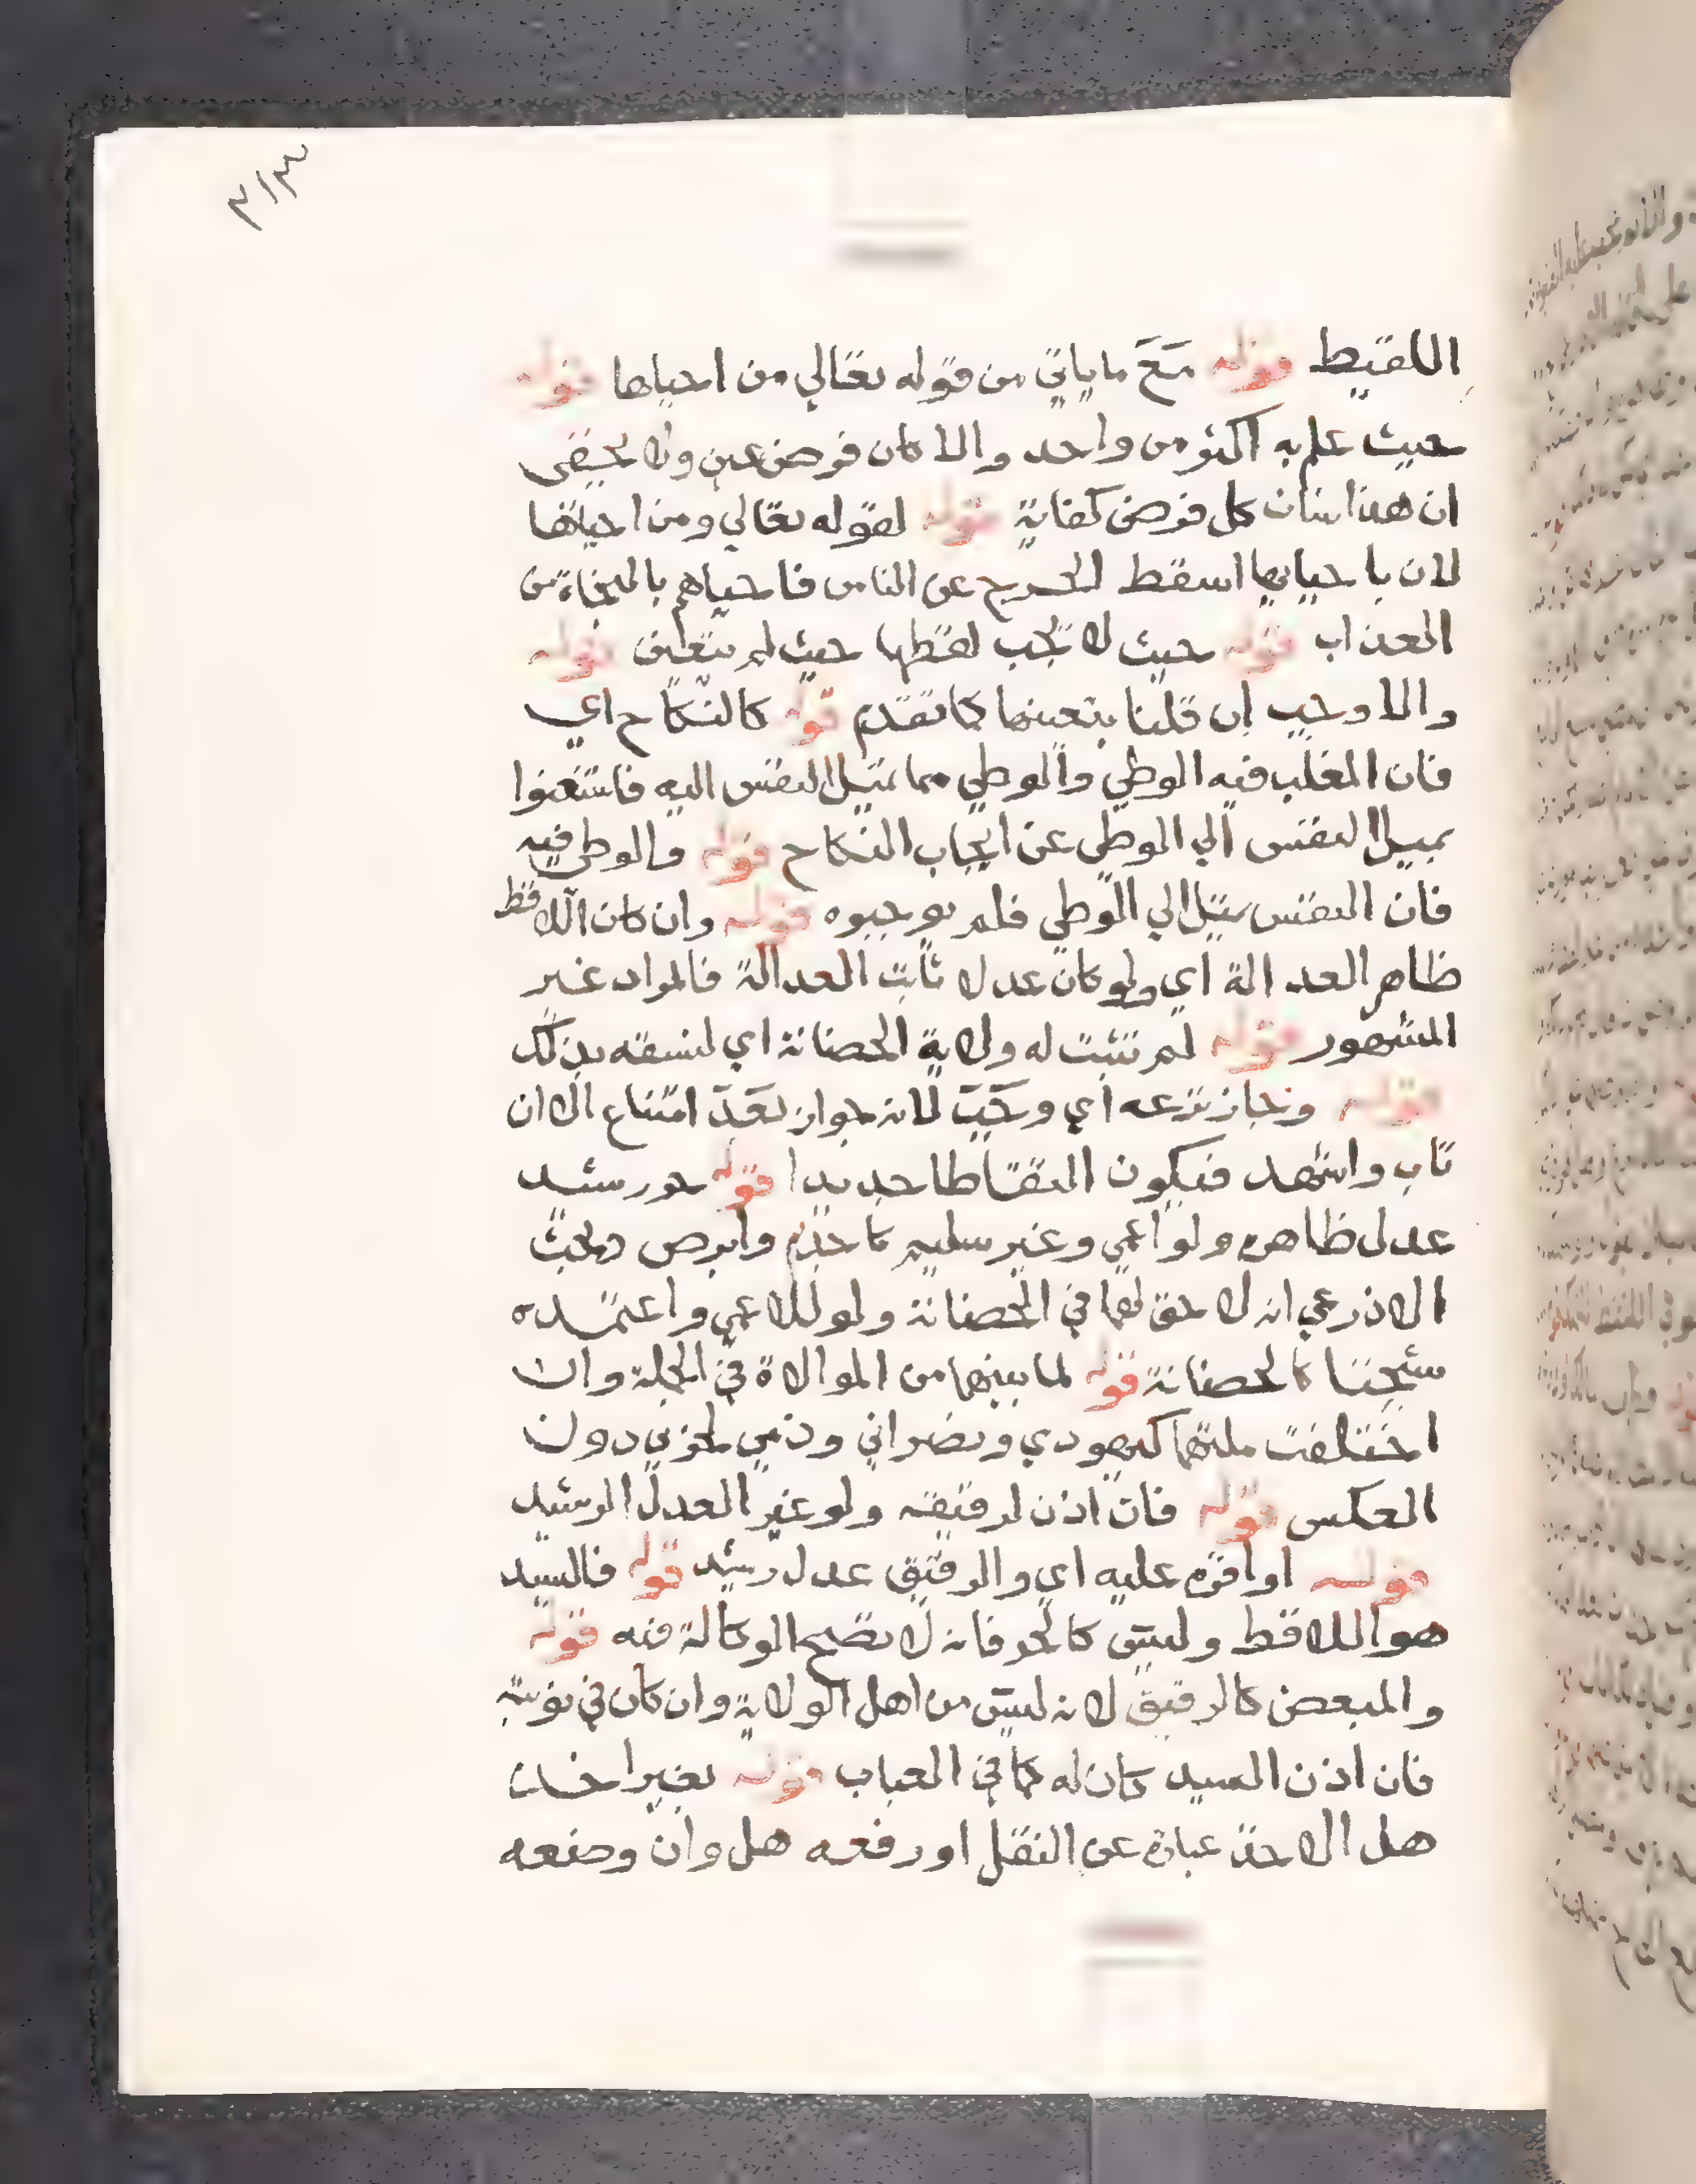 ٣١٣
اللقيط قوله مع ما ياتي من قوله تعالي من احياها قوله
حيث علم به اكثر من واحد والا كان فرض عين ولا يخفى
ان هذا شان كل فرض كفاية قوله لقوله تعالي ومن احياها
لان باحيايها اسقط الحرج عن الناس فاحياهم بالنجاة من
العذاب قوله حيث لا تجب لقطها حيث لم تتعين قوله
والا وجب ان قلنا بتعينها كما تقدم قوله كالنكاح اي
فان المغلب فيه الوطي والوطي مما تميل النفس اليه فاستغنوا
بميل النفس الي الوطي عن ايجاب النكاح قوله والوطي فيه
فان النفس تميل الي الوطي فلم يوجبوه قوله وان كان اللاقط
ظاهر العدالة اي ولو كان عدلا ثابت العدالة فالمراد غير
المشهور قوله لم تثبت له ولاية الحضانة اي لفسقه بذلك
قوله وجاز نزعه اي وجب لانه جواز بعد امتناع الا ان
تاب واشهد فيكون التقاطا جديدا قوله حر رشيد
عدل ظاهره ولو اعمي وغير سليم كاجذم وابرص وبحث
الاذرعي انه لا حق لهما في الحضانة ولو للاعمي واعتمده
شيخنا كالحضانة قوله لما بينهما من الموالاة في الجملة وان
اختلفت ملتهما كيهودي ونصراني وذمي لحربي دون
العكس قوله فان اذن لرقيقه ولو غير العدل الرشيد
قوله او اقره عليه اي والرقيق عدل رشيد قوله فالسيد
هو اللاقط وليس كالحر فانه لا تصح الوكالة فيه قوله
والمبعض كالرقيق لانه ليس من اهل الولاية وان كان في نوبته
فان اذن السيد كان له كما في العباب قوله بغير اخذ
هل الاخذ عبارة عن النقل او رفعه هل وان وضعه